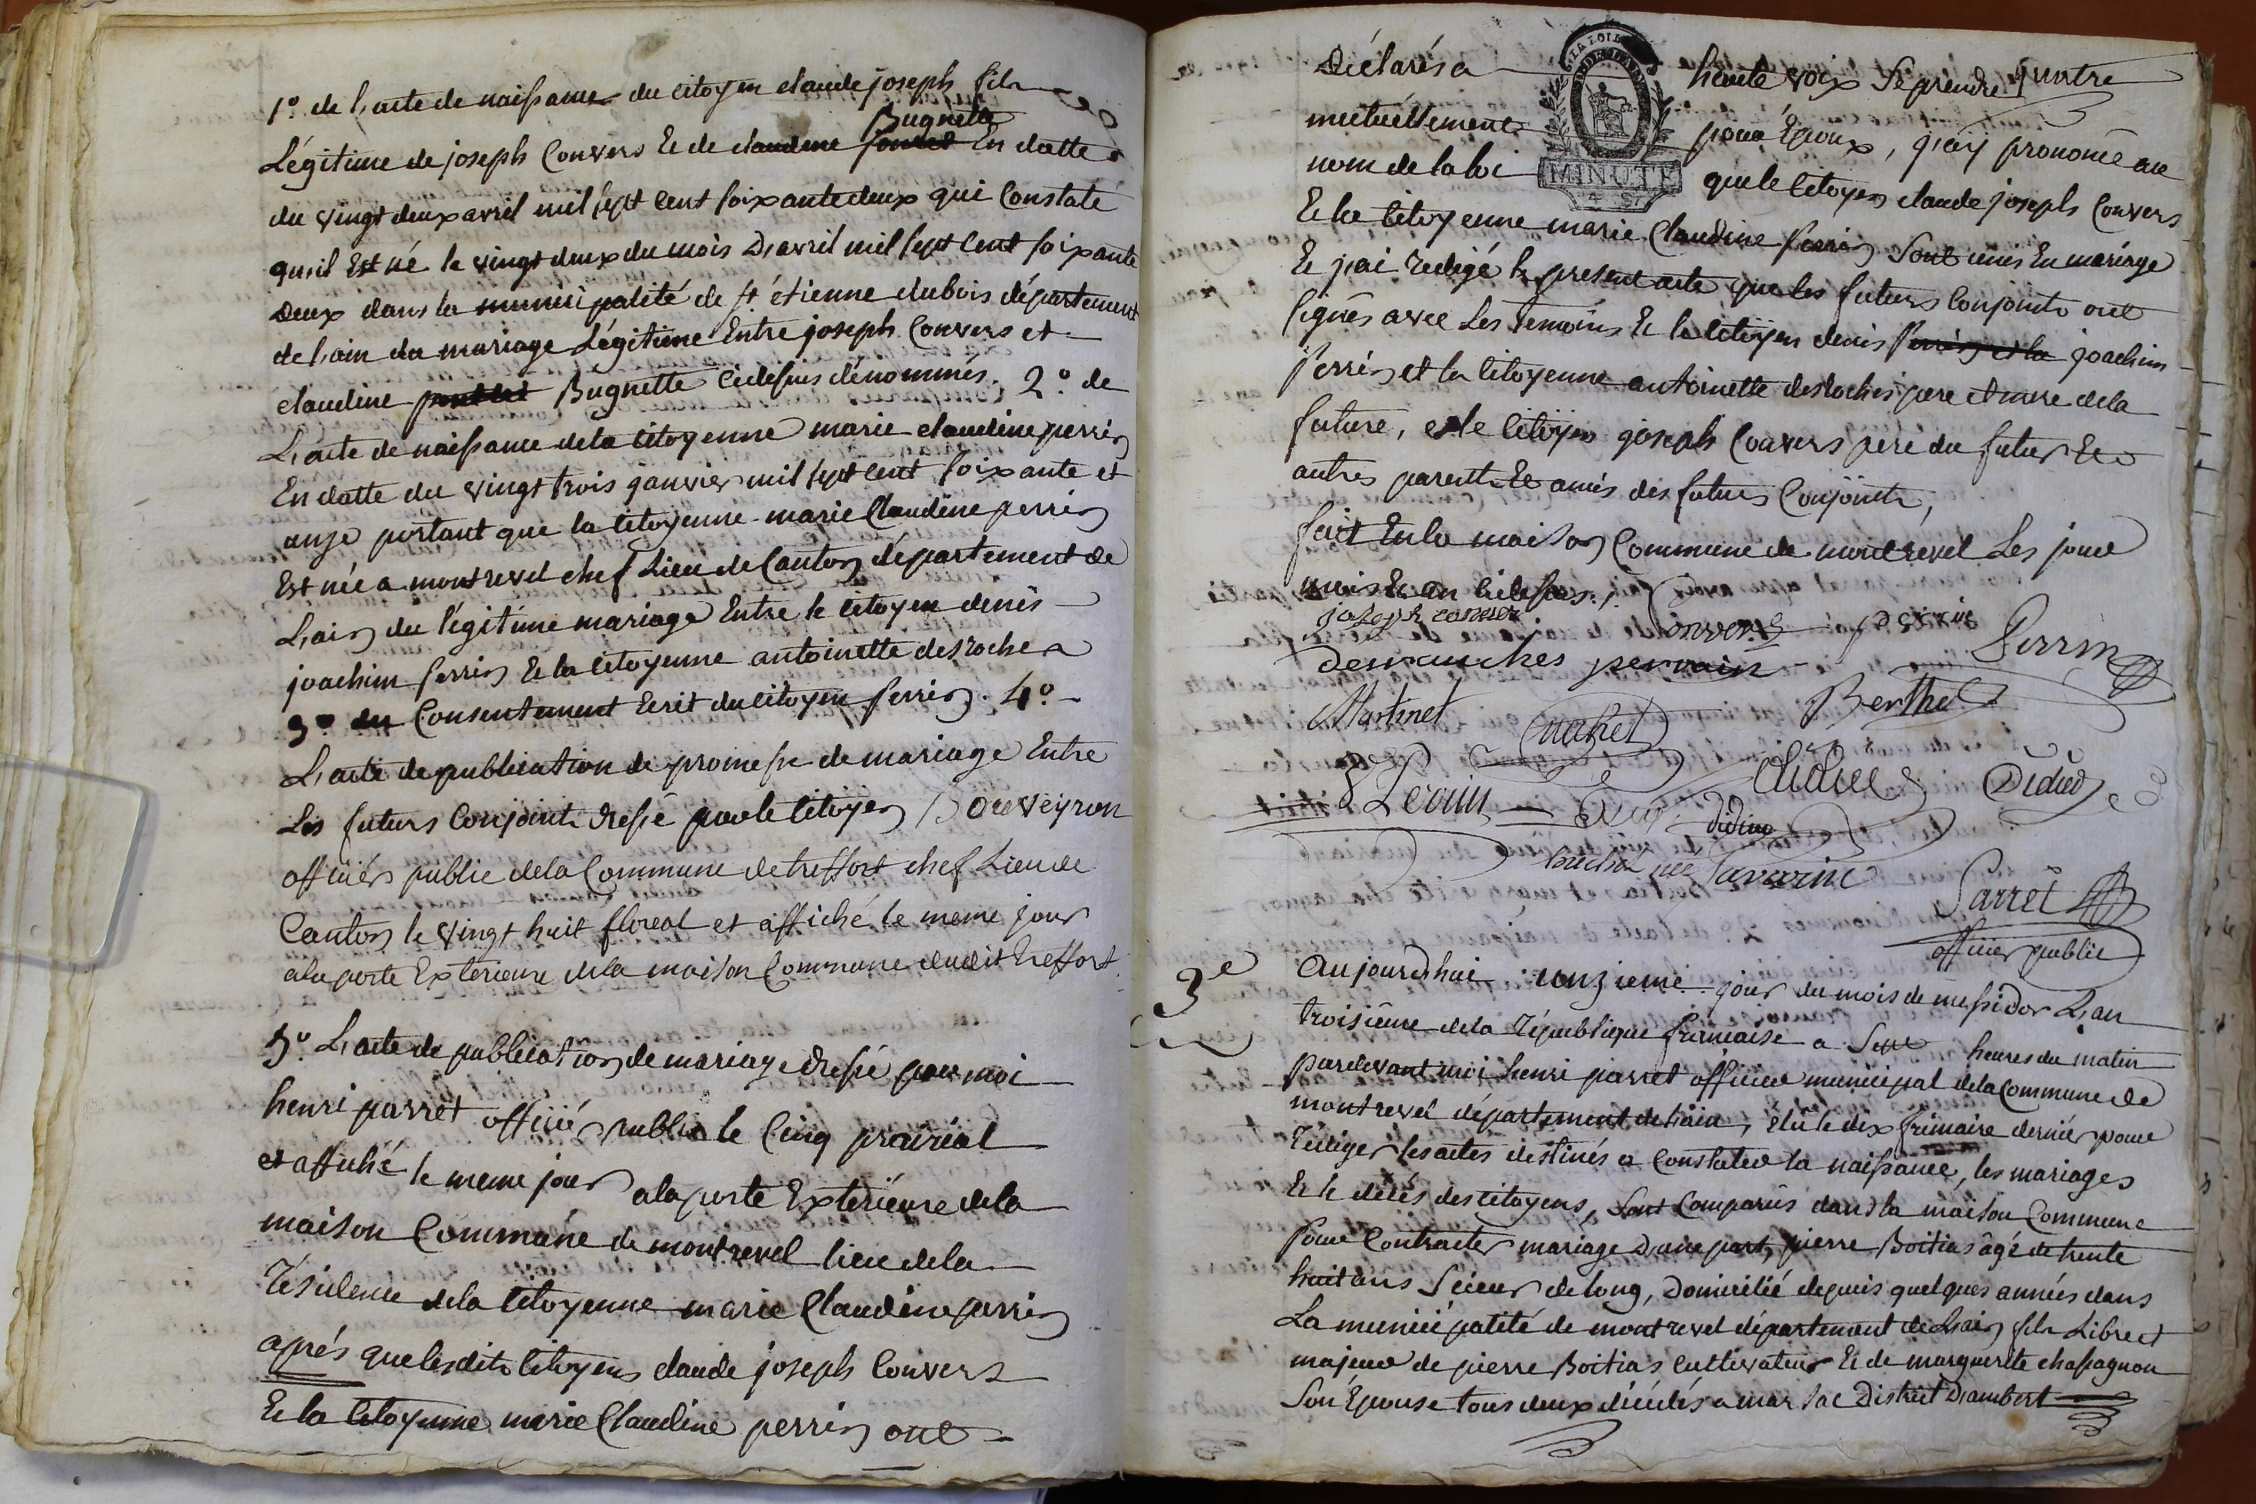 1º. de L'acte de naissance du citoyen claude joseph fils
Bugnette
Légitime de joseph Convers Et de claudine En datte
du vingt deux avril mil sept cent soixante deux qui Constate
qu'il Est né le vingt deux du mois D'avril mil sept cent soixante
Deux dans la municipalité de st étienne dubois département
de L'ain du mariage Légitime Entre joseph Convers et
claudine Bugnette cidessus dénommés. 2º. de
L'acte de naissance dela citoyenne marie claudine perrin
En datte du vingt trois janvier mil sept cent soixante et
onze portant que la citoyenne marie Claudine perrin
Est née a montrevel chef Lieu de Canton département de
L'ain du légitime mariage Entre le citoyen denis
joachim perrin Et la citoyenne antoinette desroches
3º du Consentement Ecrit du citoyen perrin. 4º.
L'acte de publication de promesse de mariage Entre
Les futurs Conjoints dressé par le citoyen Bouveyron
officiér public dela Commune de treffort chef Lieu de
Canton le vingt huit floreal et affiché le meme jour
ala porte Exterieure dela maison Commune dudit treffort.
5º. L'acte de publication de mariage dressé par moi
henri parret officiér public le Cinq prairéal
et affiché le meme jour ala porte Extérieure dela
maison Commune de montrevel lieu dela
Résidence dela citoyenne marie Claudine perrin
aprés que lesdits citoyens claude joseph Convers
Et la citoyenne marie Claudine perrin ont
Déclarés a haute voix Se prendre
mutuéllement pour Epoux, j'ay prononcé au
nom de la loi que le citoyen claude joseph Convers
MINUTE
Et la citoyenne marie Claudine perrin Sont unis En mariage
Et j'ai redigé le present acte que les futurs Conjoints ont
signés avec Les temoins Et le citoyen denis Perrin et la joachim
Perrin et la citoyenne antoinette desroches pere et mere dela
future, et le citoyen joseph Convers pere du futur Et
autres parents Et amis des futurs Conjoints,
fait En la maison Commune de montrevel Les jour
mois Et an cidessus.
joseph conver Convers perrin Perrin
desrauches perrain
Martinet Berthet
Perrin Didier
didier
née Savarin
Parret
officier public
3e Aujourd'hui onzieme jour du mois de messidor L'an
troisiéme dela République francaise a Sept heures du matin
pardevant moi henri parret officier municipal dela Commune de
montrevel département de L'ain, élû le dix frimaire dernier pour
rédiger les actes destinés a Constater la naissance, les mariages
Et le décés des citoyens, Sont Comparûs dans la maison Commune
pour Contracter mariage D'une part, pierre Boitias âgé de trente
huit ans Scieur de long, Domicilié depuis quelques années dans
La municipalité de montrevel département de L'ain fils Libre et
majeur de pierre Boitias cultivateur Et de marguerite chassagnon
Son Epouse tous deux décédés a marsac District D'ambert